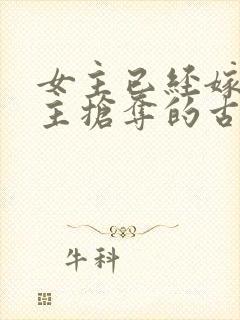 女主已經嫁
主搶奪的古
牛科